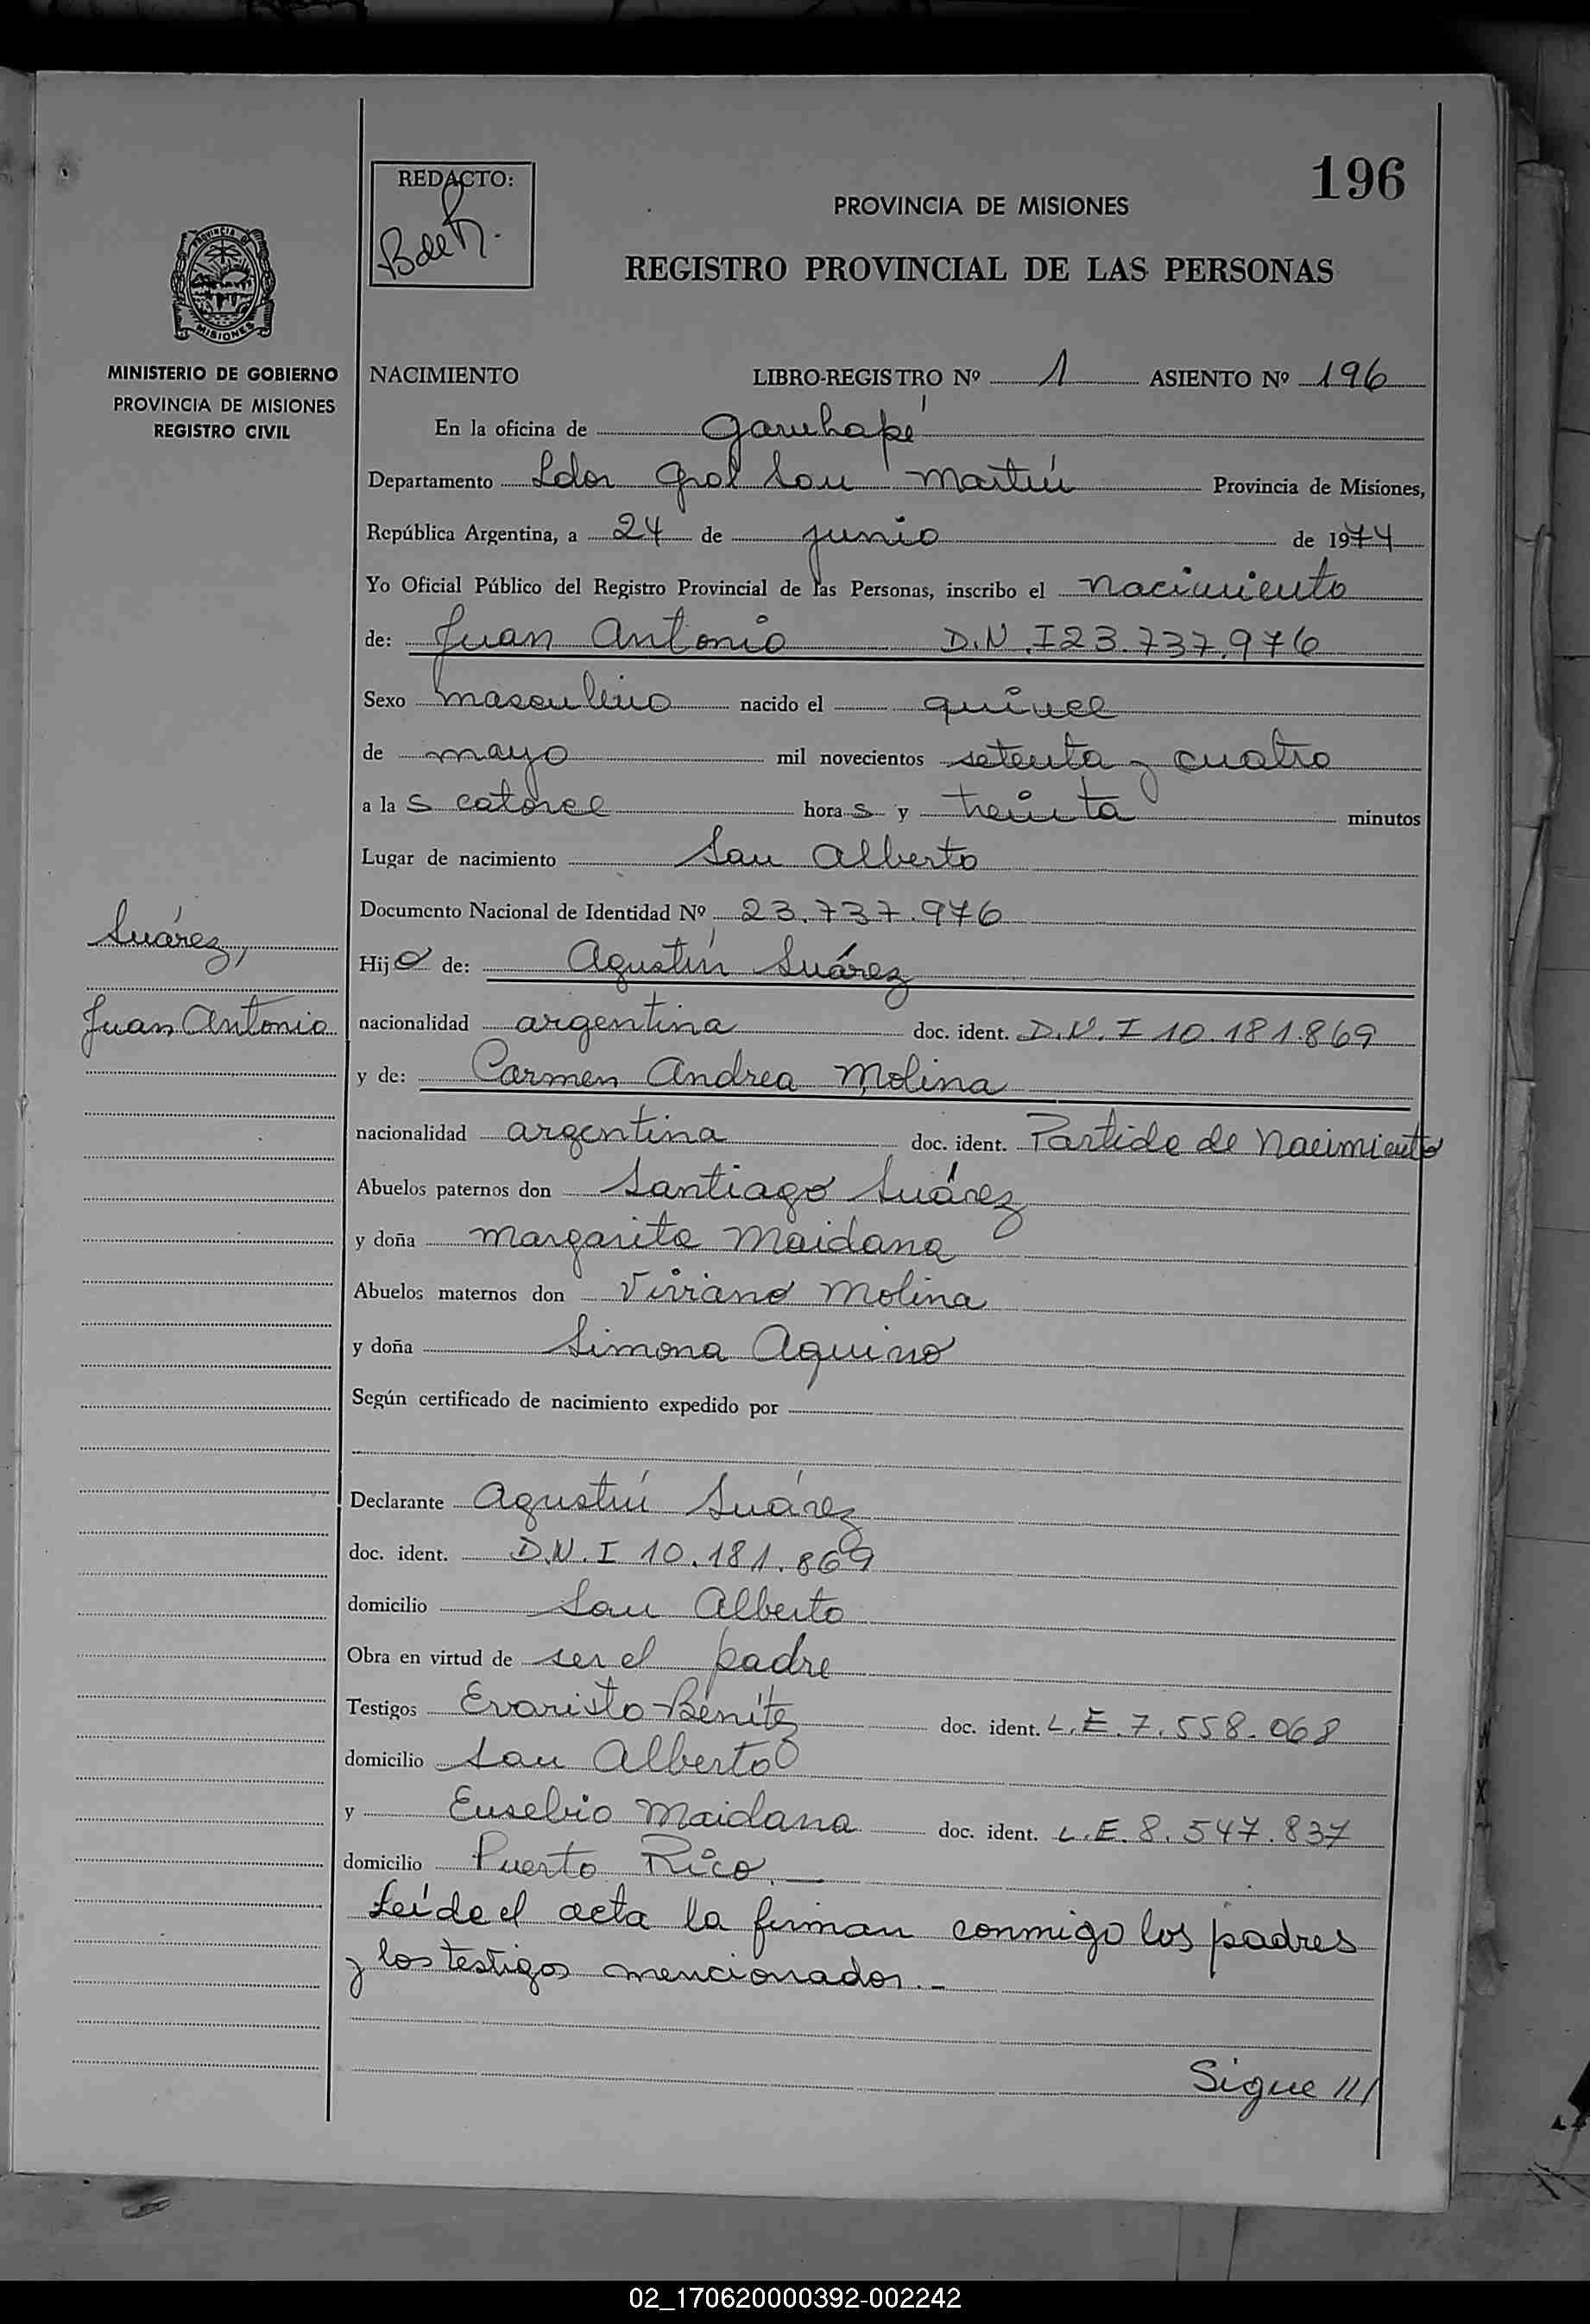 196
REDACTO:
B de R.
PROVINCIA DE MISIONES
REGISTRO PROVINCIAL DE LAS PERSONAS
PROVINCIA DE
MISIONES
MINISTERIO DE GOBIERNO
PROVINCIA DE MISIONES
REGISTRO CIVIL
NACIMIENTO LIBRO-REGISTRO Nº 1 ASIENTO Nº 196
En la oficina de Garuhapé
Departamento Ldor Gral San Martín Provincia de Misiones,
República Argentina, a 24 de junio de 1974
Yo Oficial Público del Registro Provincial de las Personas, inscribo el nacimiento
de: Juan Antonio D.N.I 23.737.976
Sexo masculino nacido el quince
de mayo mil novecientos setenta y cuatro
a la s catorce hora s y treinta minutos
Lugar de nacimiento San Alberto
Documento Nacional de Identidad Nº 23.737.976
Suárez,
Hijo de: Agustín Suárez
Juan Antonio
nacionalidad argentina doc. ident. D.N.I 10.181.869
y de: Carmen Andrea Molina
nacionalidad argentina doc. ident. Partida de Nacimiento
Abuelos paternos don Santiago Suárez
y doña Margarita Maidana
Abuelos maternos don Viviano Molina
y doña Simona Aquino
Según certificado de nacimiento expedido por
Declarante Agustín Suárez
doc. ident. D.N.I 10.181.869
domicilio San Alberto
Obra en virtud de ser el padre
Testigos Evaristo Benítez doc. ident. L.E. 7.558.068
domicilio San Alberto
y Eusebio Maidana doc. ident. L.E. 8.547.837
domicilio Puerto Rico.—
Leída el acta la firman conmigo los padres
y los testigos mencionados.-
Sigue ///
02_170620000392-002242